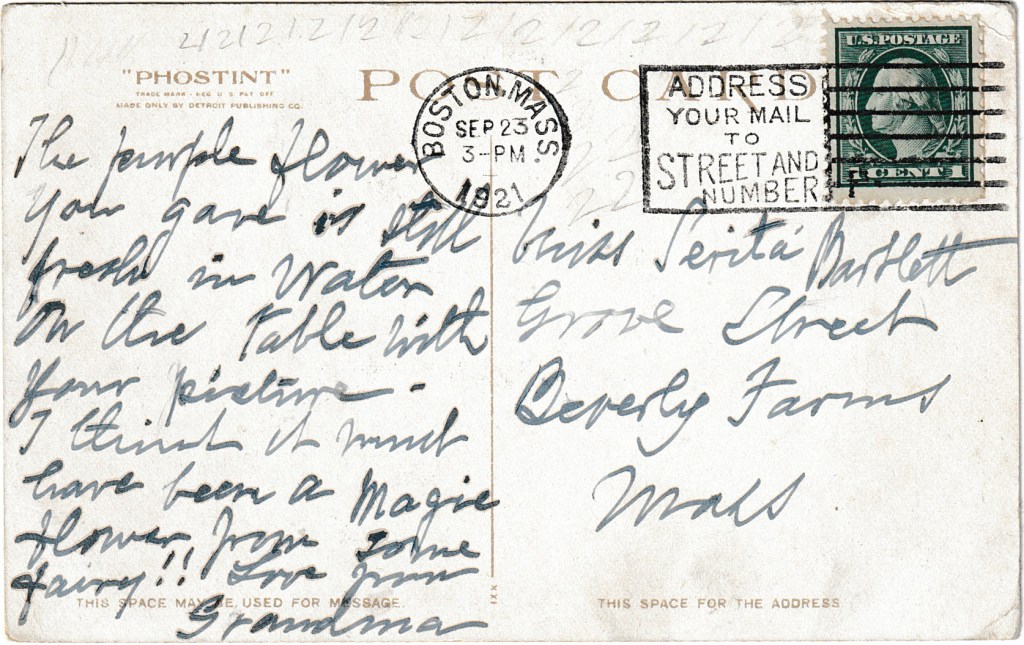 "PHOSTINT"
TRADE MARK - REG U S PAT OFF
MADE ONLY BY DETROIT PUBLISHING CO.
POST CARD
BOSTON, MASS.
SEP 23
3-PM
1921
ADDRESS
YOUR MAIL
TO
STREET AND
NUMBER
U.S. POSTAGE
1 CENT 1
The purple flower
you gave is still
fresh in water
on the table with
your picture -
I think it must
have been a Magic
flower from some
fairy!! Love from
Grandma
Miss Serita Bartlett
Grove Street
Beverly Farms
Mass
THIS SPACE MAY BE USED FOR MESSAGE.
XXI
THIS SPACE FOR THE ADDRESS